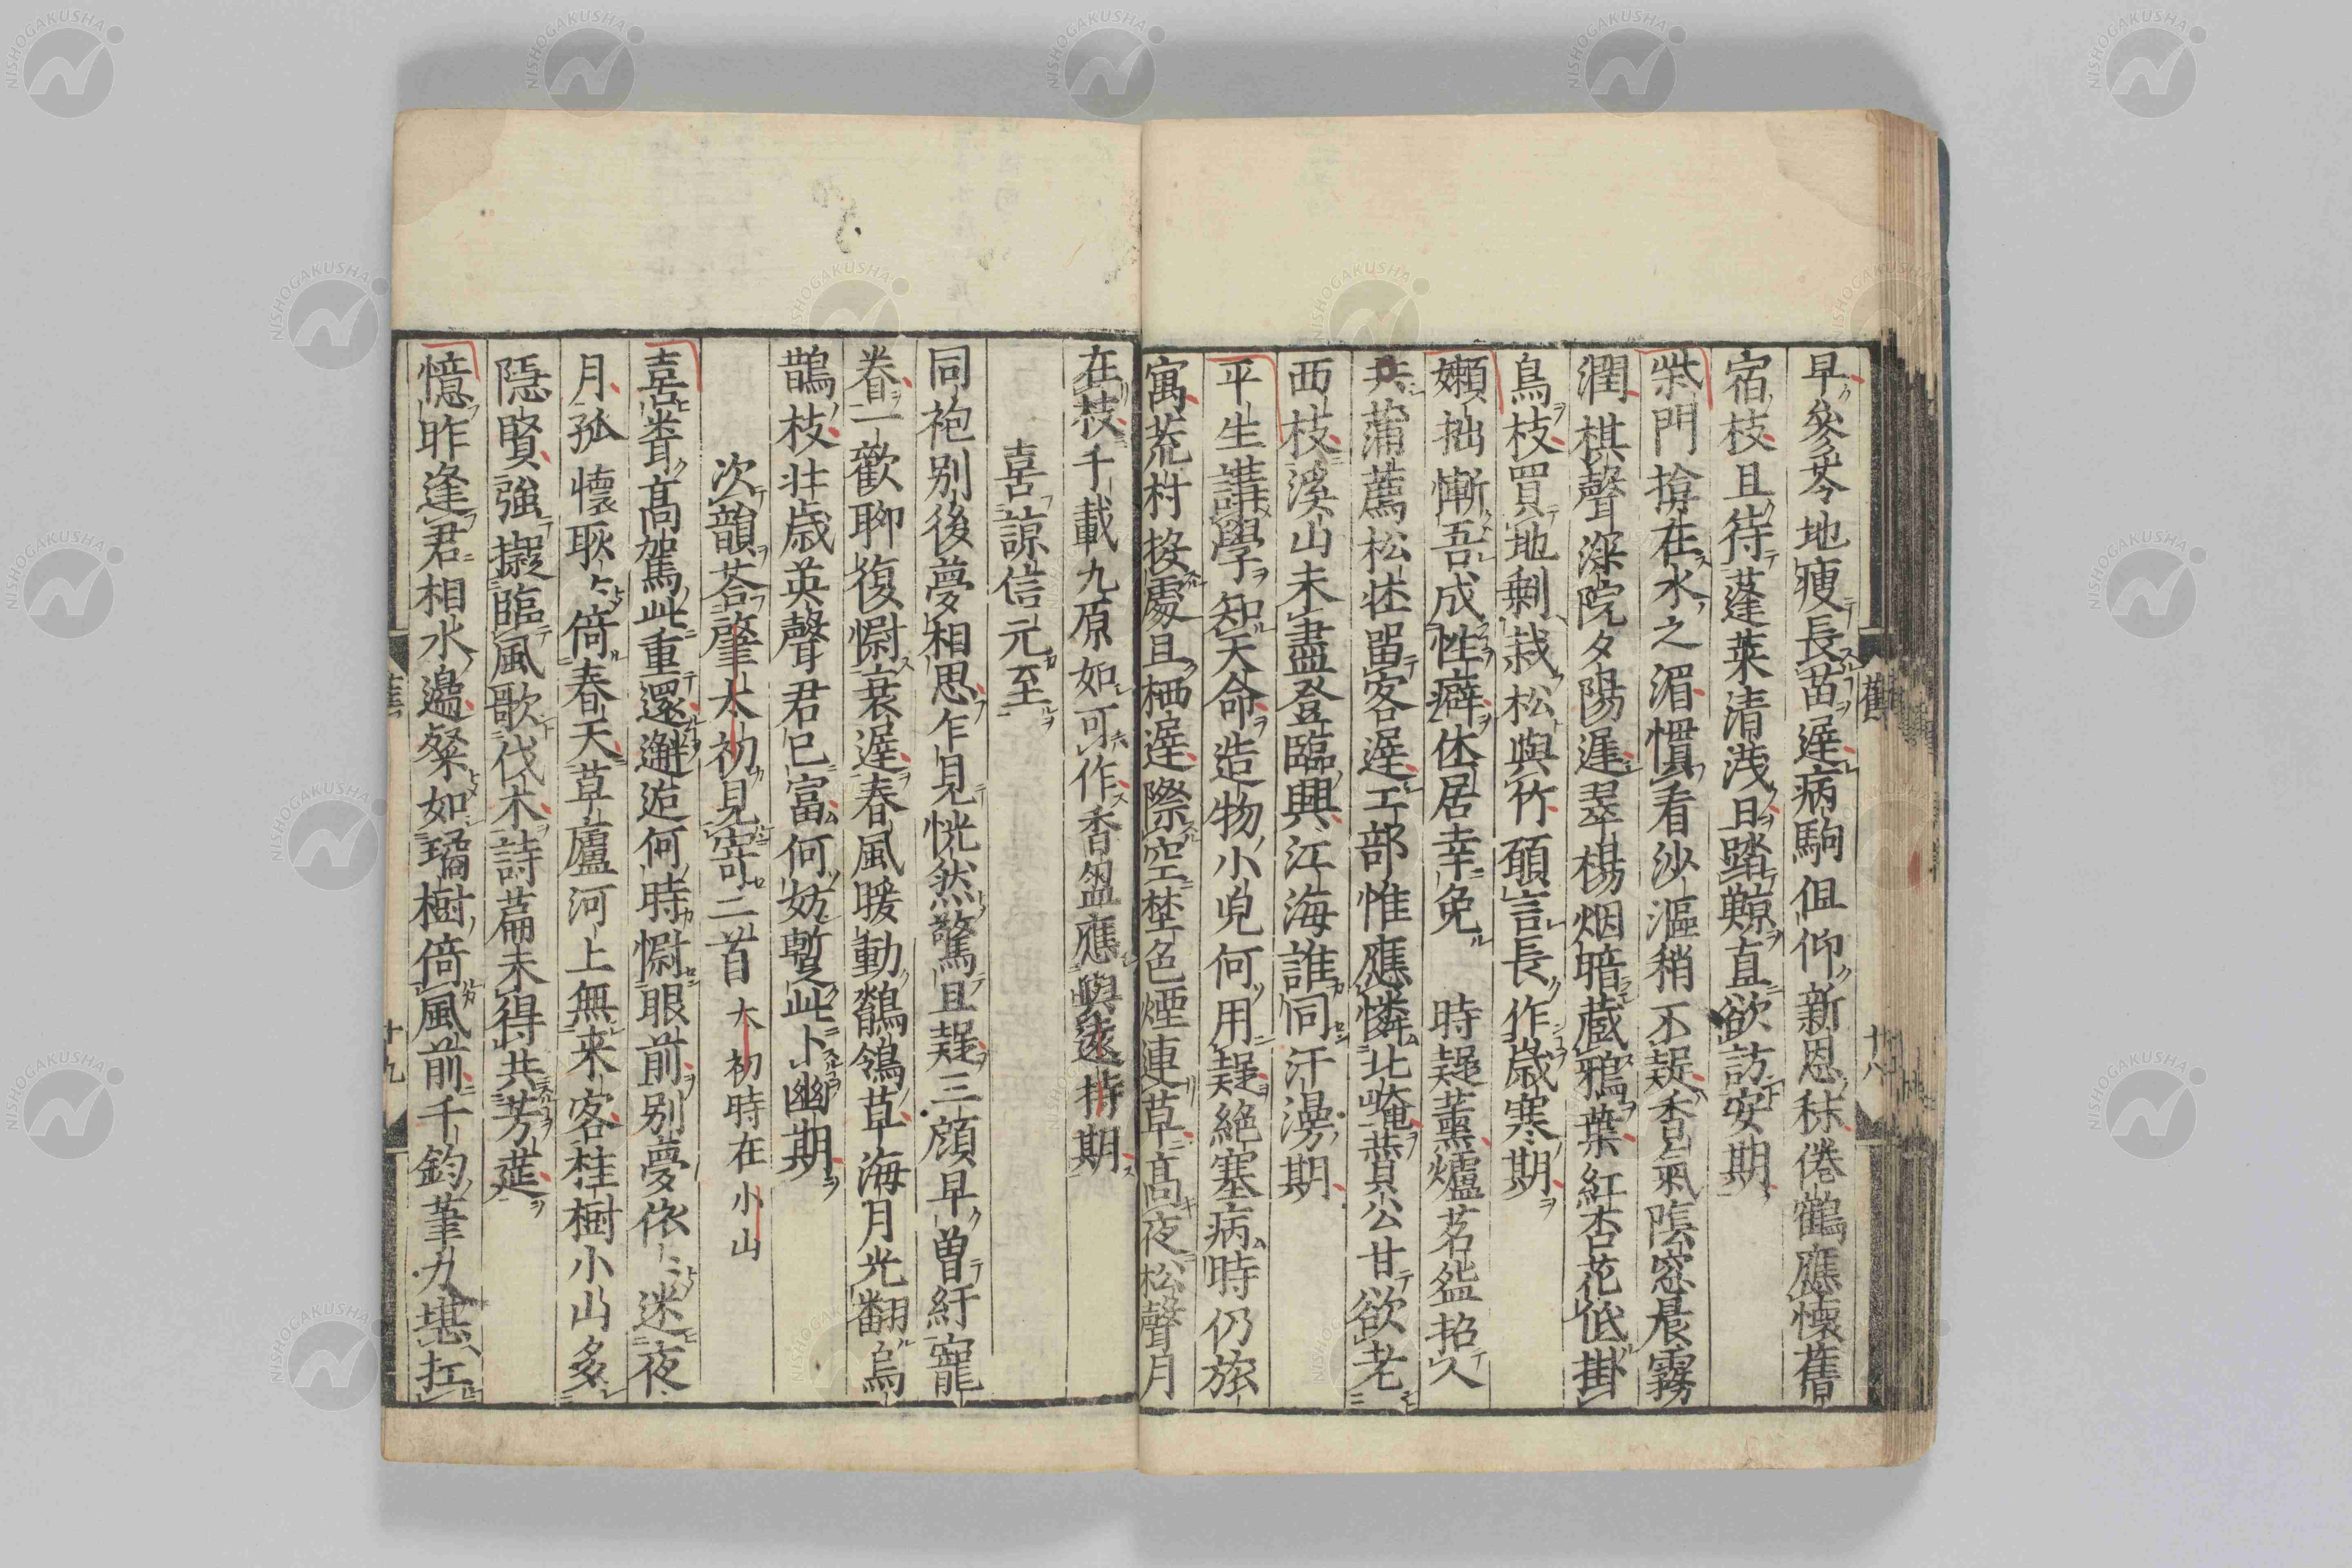 早參苓地瘦長苗遲病駒伹仰新恩秣倦鶴應懷舊
宿枝且待蓬萊清淺日踏鯨直欲訪安期
柴門搶在水之湄慣看沙漚稍不疑香氣隂窓晨霧
潤棋聲深院夕陽遲翠楊烟暗藏鴉葉紅杏花低掛
鳥枝買地剩栽松與竹頋言長作歳寒期
嬾拙慚吾成性癖休居幸免 時疑薰爐茗盌招久
共蒲薦松茌畱客遲工部惟應憐北崦黄公甘欲老
西枝溪山未盡登臨興江海誰同汗漫期
平生講學知天命造物小兒何用疑絶塞病時仍旅
寓荒村按處且栖遲際空埜色煙連草高夜松聲月
在枝千載九原如可作香盌應與遠持期
喜諒信元至
同袍别後夢相思乍見恍然驚且疑三頋早曽紆寵
眷一歡聊復慰衰遲春風暖動鶺鴒草海月光翻烏
鵲枝壮歳英聲君已富何妨蹔此卜幽期
次韻荅肇太初見寄二首 太初時在小山
喜聳高駕此重還邂逅何時慰眼前别夢依〻迷夜
月孤懷耿〻倚春天草廬河上無来客桂樹小山多
隠賢強擬臨風歌伐木詩篇未得共芳莚
憶昨逢君相水邉粲如璚樹倚風前千鈞筆力堪扛
舊
十八
十九
NISHOGAKUSHA